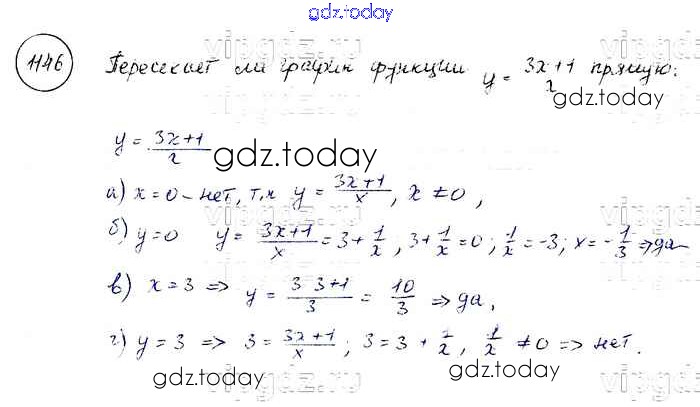 gdz.today
1146 Пересекает ли график функции y = (3x+1)/x прямую:
gdz.today
y = (3x+1)/x
gdz.today
а) x=0 – нет, т.к y = (3x+1)/x, x ≠0,
б) y=0 y = (3x+1)/x = 3 + 1/x, 3 + 1/x = 0; 1/x = -3; x = -1/3 ⇒ да
в) x = 3 ⇒ y = (3·3+1)/3 = 10/3 ⇒ да,
г) y = 3 ⇒ 3 = (3x+1)/x; 3 = 3 + 1/x, 1/x ≠0 ⇒ нет.
gdz.today
gdz.today